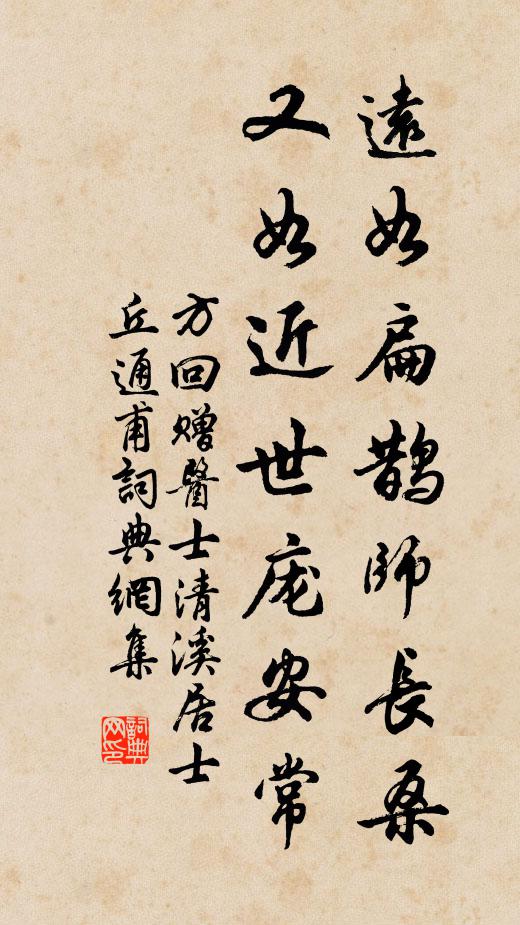 遠如扁鵲師長桑
又如近世庞安常
方回赠醫士清溪居士
丘通甫詞典網集
詞典
网印